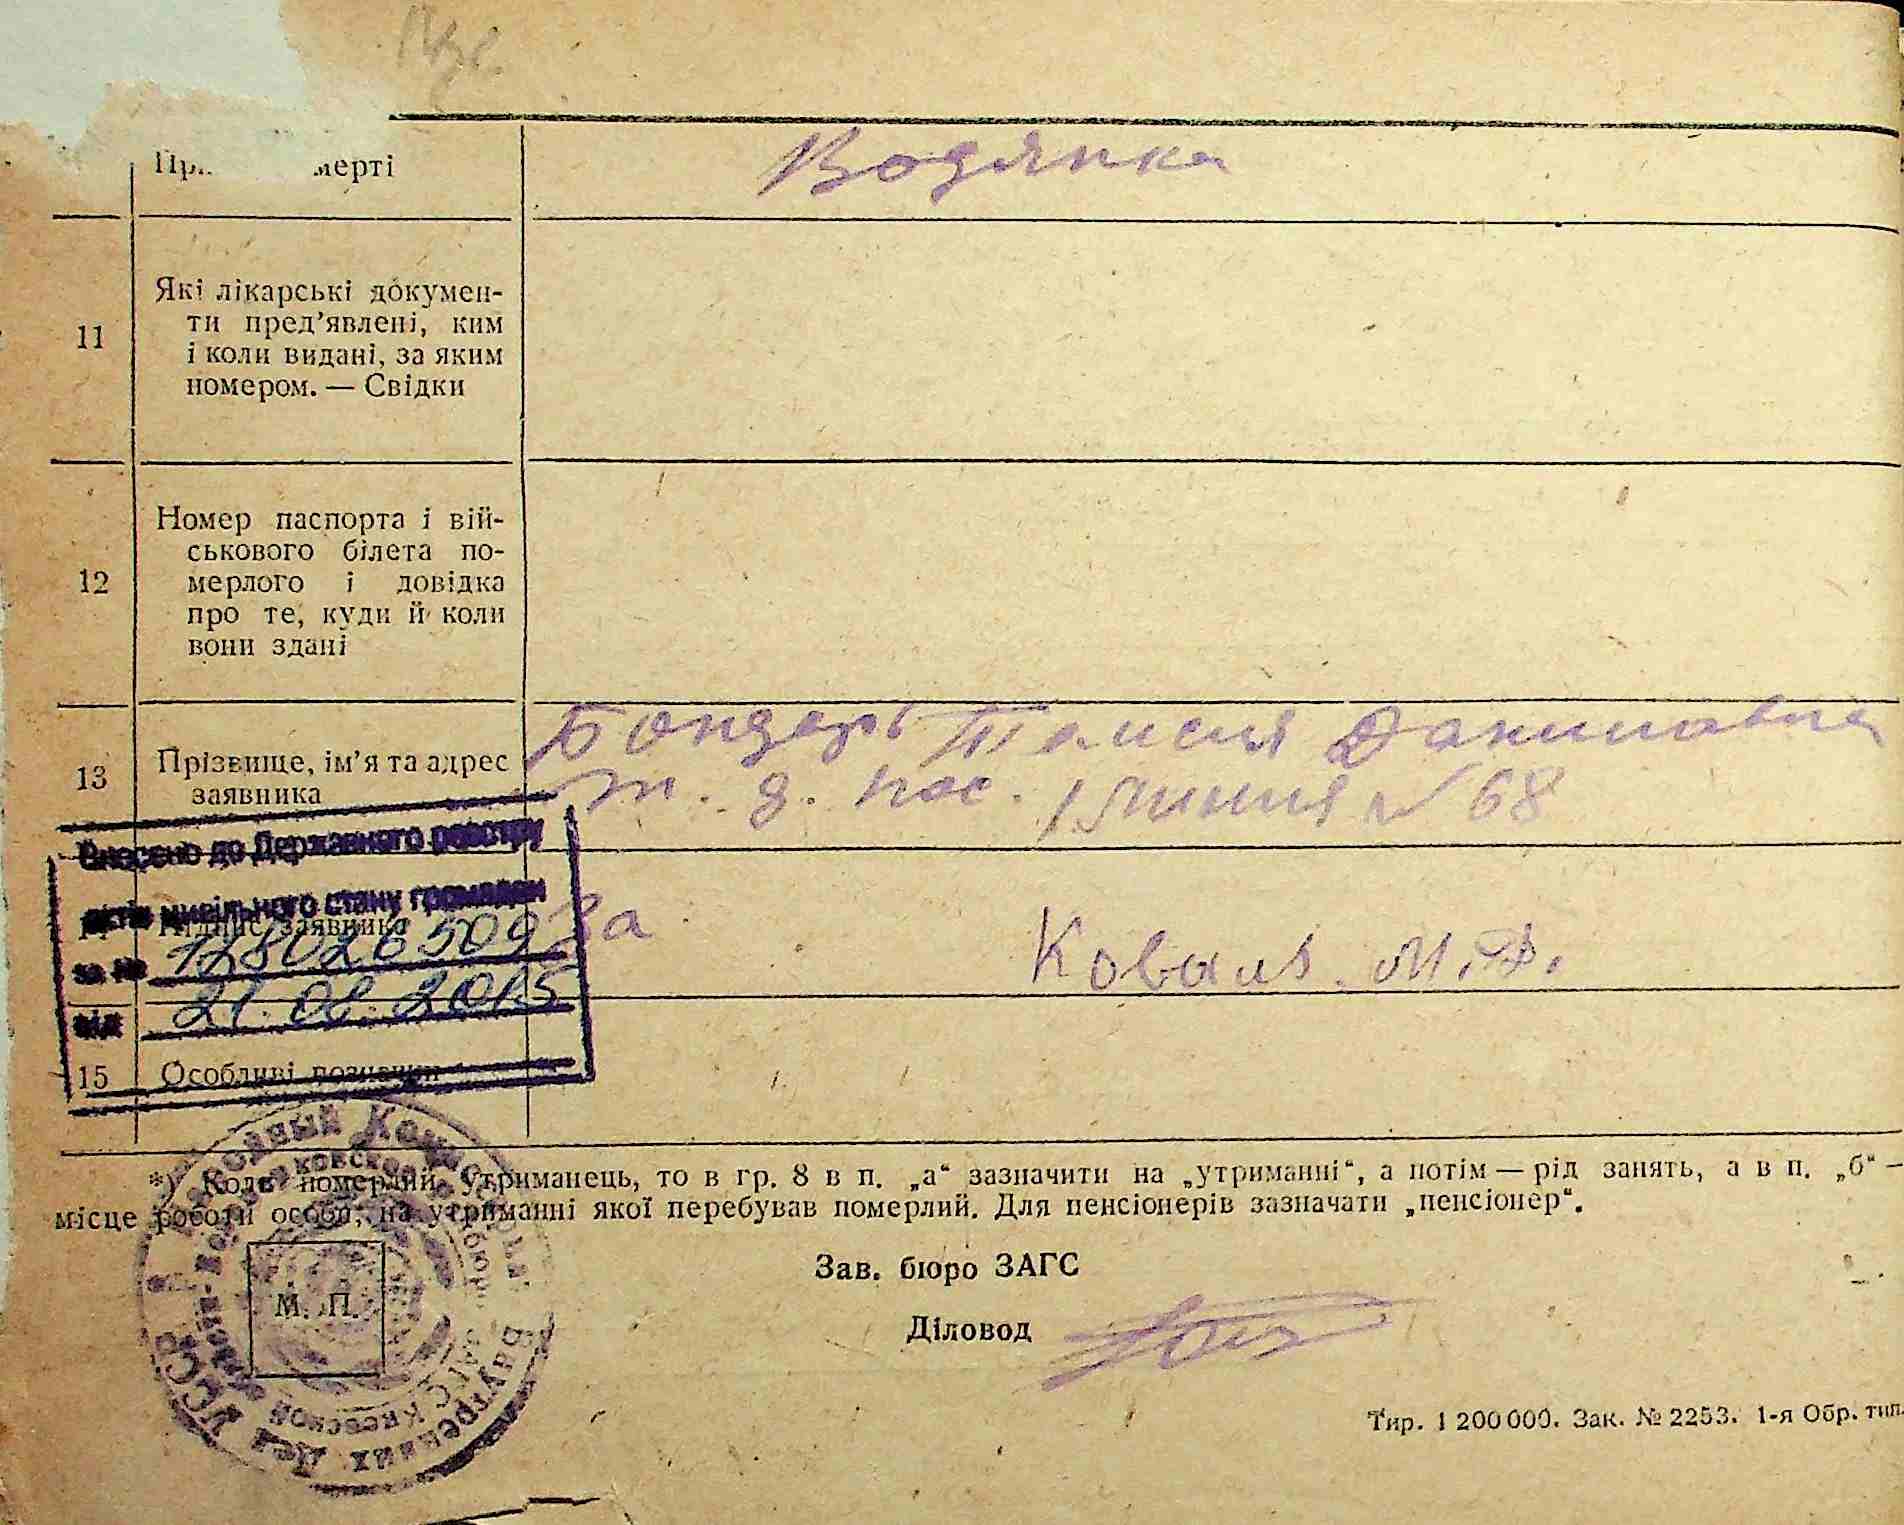 мерті
Водянка
11
Які лікарські докумен-
ти пред’явлені, ким
і коли видані, за яким
номером. — Свідки
12
Номер паспорта і вій-
ськового білета по-
мерлого і довідка
про те, куди й коли
вони здані
13
Прізвище, ім’я та адрес
заявника
Бондарь Таисия Даниловна
ж. д. пос. 1 линия № 68
Внесено до Державного реєстру
актів цивільного стану громадян
Підпис заявника
за № 128026509
від 21.08.2015
За Коваль М.Ф.
15
Особливі позначки
*) Коли померлий утриманець, то в гр. 8 в п. „а“ зазначити на „утриманні“, а потім — рід занять, а в п. „б“ —
місце роботи особи, на утриманні якої перебував померлий. Для пенсіонерів зазначати „пенсіонер“.
Зав. бюро ЗАГС
М. П.
Діловод
Народный Комиссариат Внутренних Дел УССР
ЗАГС Киевской
Тир. 1 200 000. Зак. № 2253. 1-я Обр. тип.